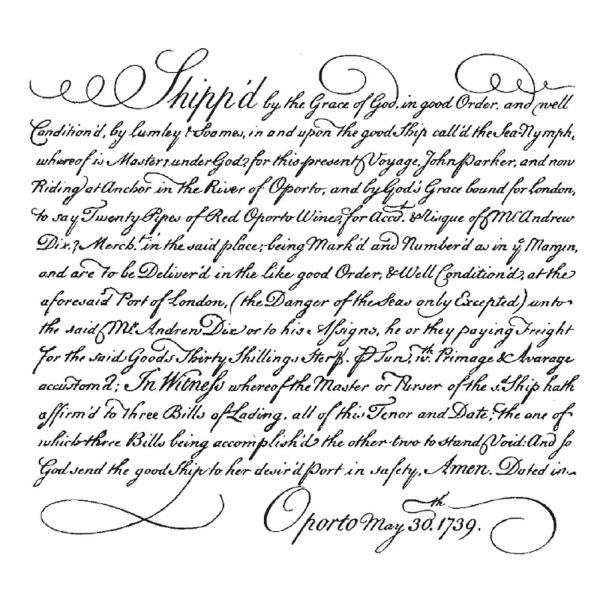 Shipp'd by the Grace of God, in good Order, and well
Condition'd, by Lumley & Soames, in and upon the good Ship call'd the Sea-Nymph,
whereof is Master, under God, for this present Voyage, John Parker, and now
Riding at Anchor in the River of Oporto, and by God's Grace bound for London,
to say Twenty Pipes of Red Oporto Wine, for Accᵗ. & Risque of Mʳ. Andrew
Dix, Merchᵗ. in the said place; being Mark'd and Number'd as in yᵉ Margin,
and are to be Deliver'd in the like good Order, & Well Condition'd, at the
aforesaid Port of London, (the Danger of the Seas only Excepted) unto
the said Mʳ. Andrew Dix or to his Assigns, he or they paying Freight
for the said Goods Thirty Shillings Sterˡ. ⅌ Tun, wᵗʰ. Primage & Avarage
accustom'd; In Witness whereof the Master or Purser of the sᵈ. Ship hath
affirm'd to three Bills of Lading, all of this Tenor and Date, the one of
which three Bills being accomplish'd the other two to stand Void. And so
God send the good Ship to her desir'd Port in safety, Amen. Dated in
Oporto May 30.ᵗʰ 1739.